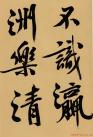 不識瀛
洲樂清